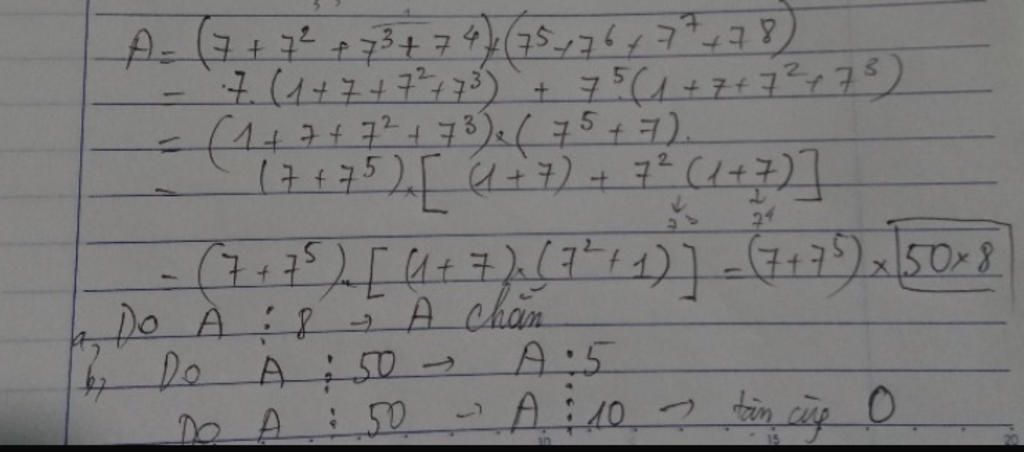 A = (7 + 7² + 7³ + 7⁴) + (7⁵ + 7⁶ + 7⁷ + 7⁸)
= 7.(1 + 7 + 7² + 7³) + 7⁵.(1 + 7 + 7² + 7³)
= (1 + 7 + 7² + 7³).(7⁵ + 7).
= (7 + 7⁵).[(1 + 7) + 7²(1 + 7)]
= (7 + 7⁵).[(1 + 7).(7² + 1)] = (7 + 7⁵) × 50 × 8
a, Do A ⋮ 8 → A chẵn
b, Do A ⋮ 50 → A ⋮ 5
Do A ⋮ 50 → A ⋮ 10 → tận cùg 0
10 15 20